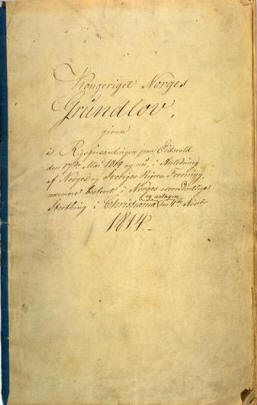 Kongeriget Norges
Grundlov,
given
i Rigsforsamlingen paa Eidsvold
den 17de Mai 1814 og nu, i Anledning
af Norges og Sveriges Riges Forening,
nærmere bestemt i Norges overordentlige
og antagen
Storthing i Christiania den 4de Novbr
1814.